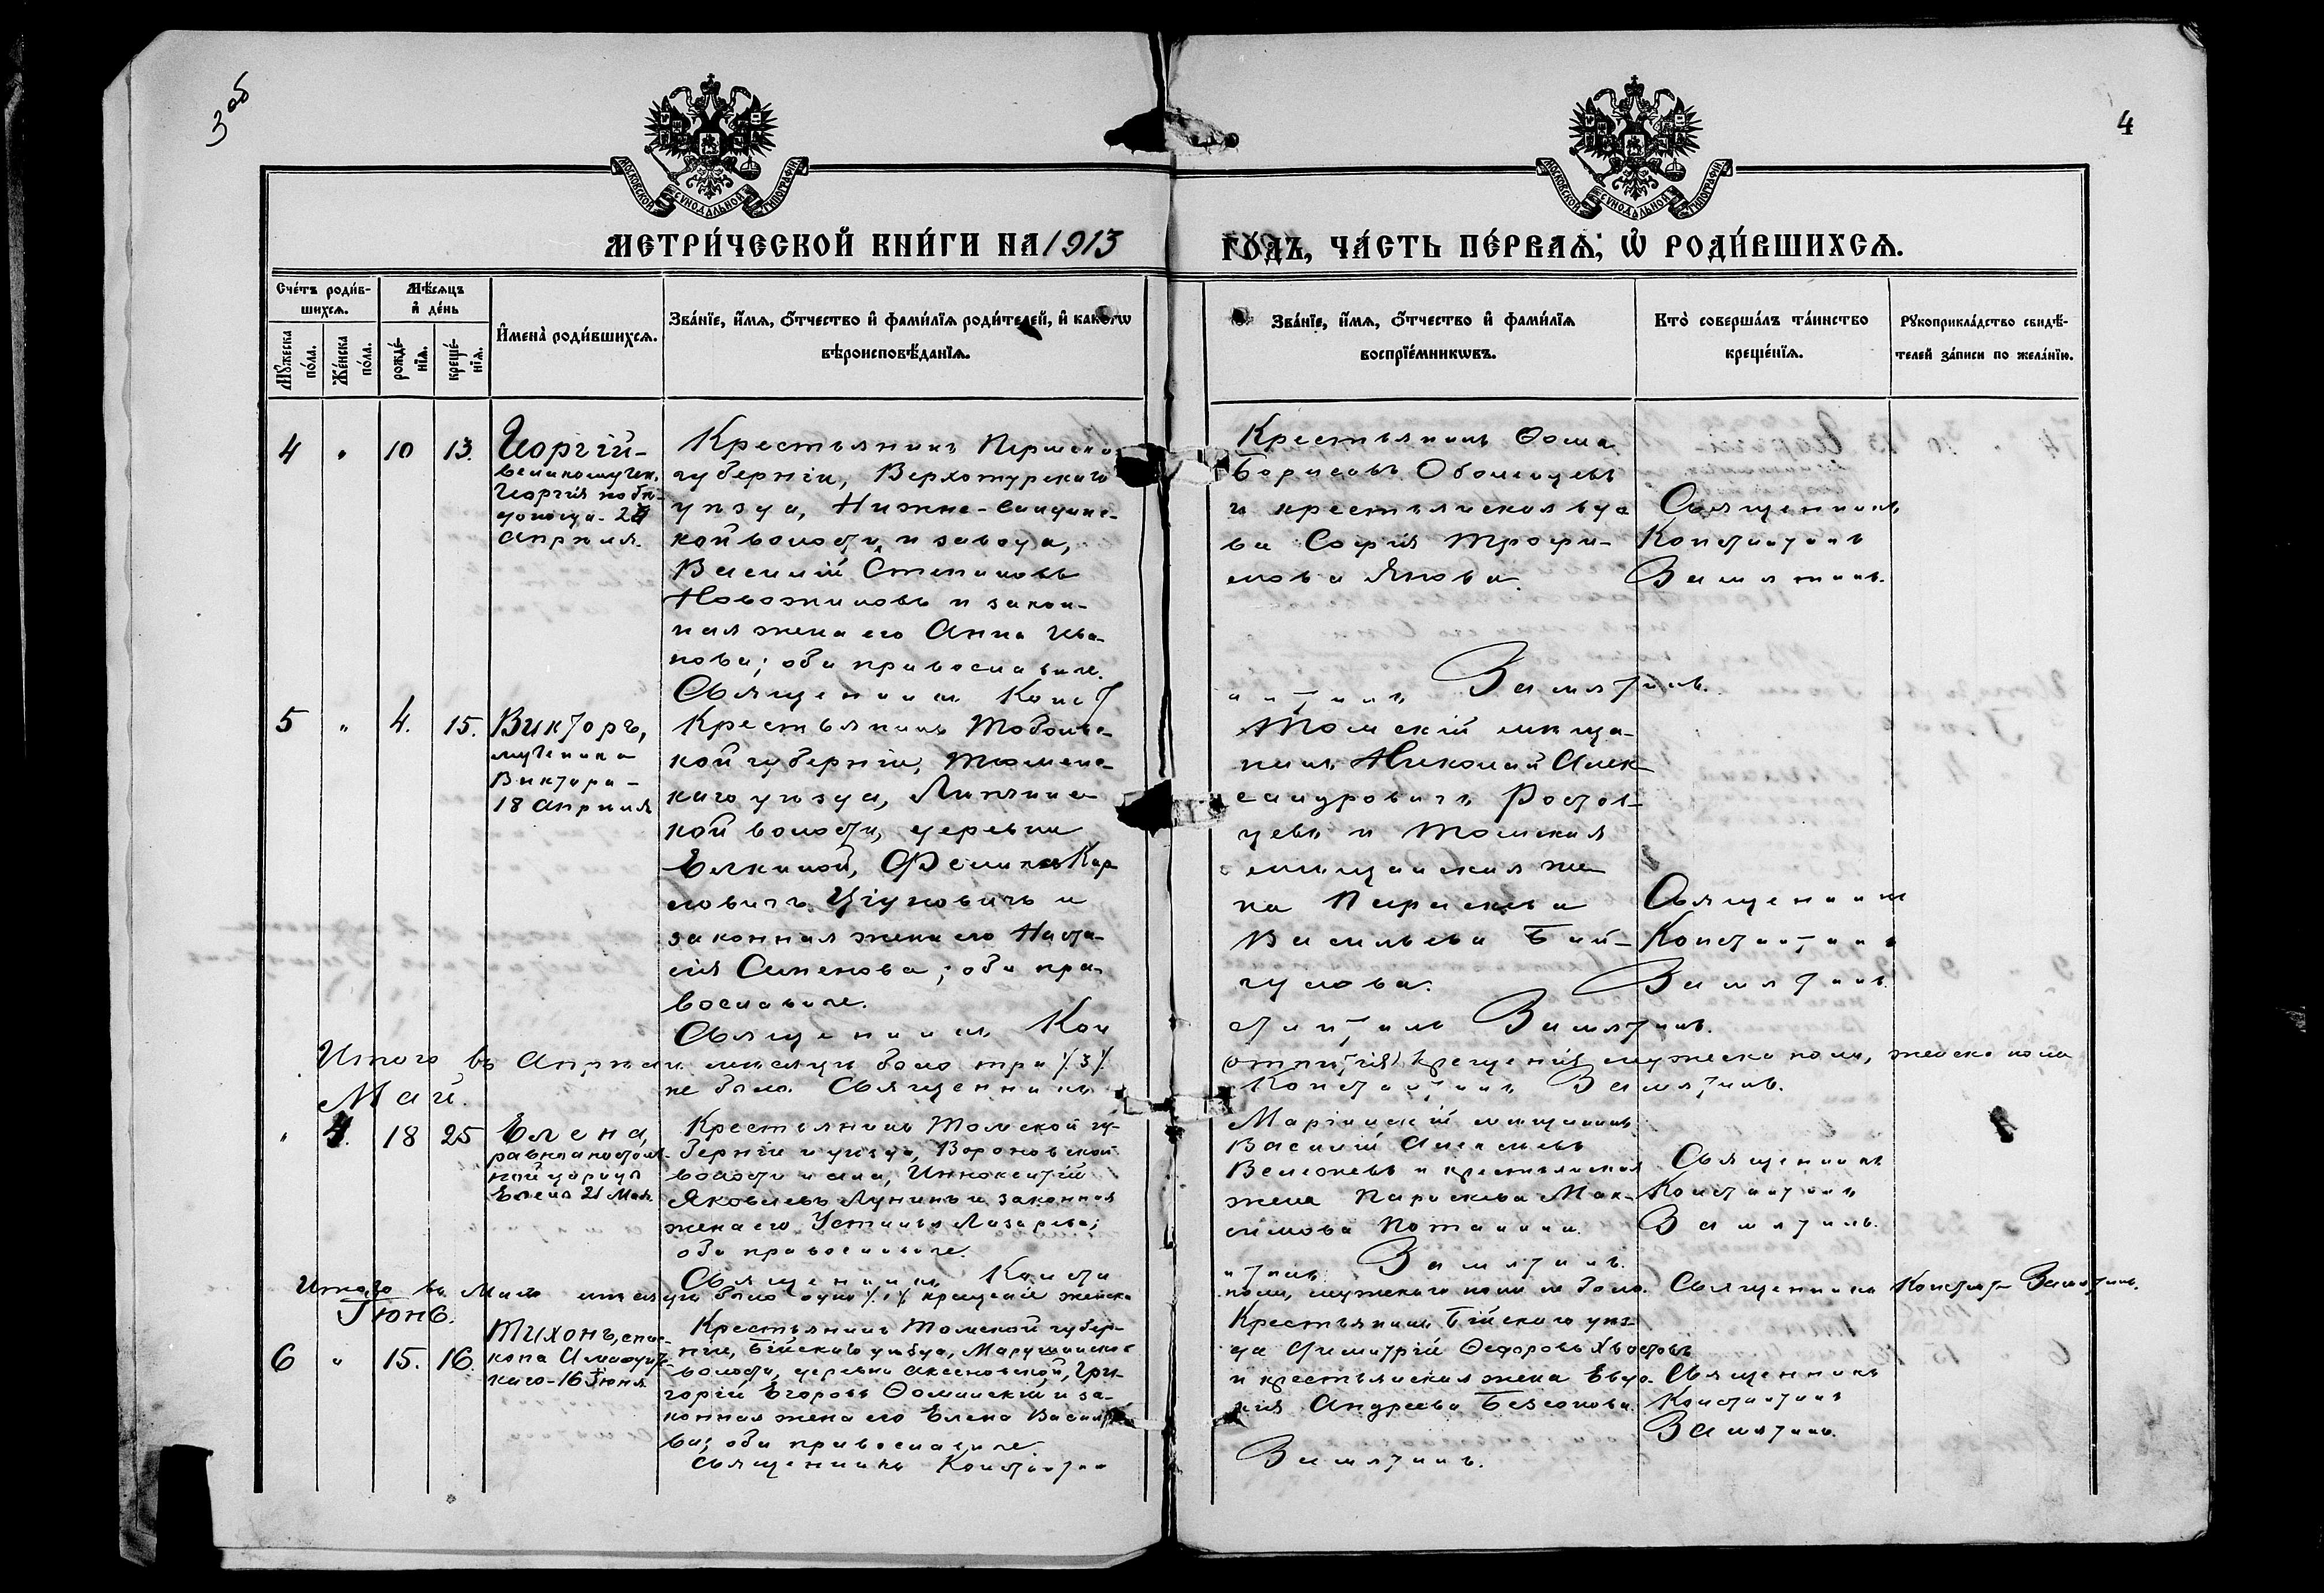 3 об
4
МОСКОВСКОЙ СѴНОДАЛЬНОЙ ТИПОГРАФІИ
МОСКОВСКОЙ СѴНОДАЛЬНОЙ ТИПОГРАФІИ
МЕТРИ́ЧЕСКОЙ КНИ́ГИ НА 1913
ГО́ДЪ, ЧА́СТЬ ПЕ́РВАѦ, Ѡ҆ РОДИ́ВШИХСѦ.
Сче́тъ роди́в-
шихсѧ.
Мѣ́сѧцъ
и҆ де́нь
Мꙋ́жеска
по́ла.
Же́нска
по́ла.
рожде́-
нїѧ.
креще́-
нїѧ.
И҆мена̀ роди́вшихсѧ.
Зва́нїе, и҆́мѧ, ѻ҆́тчество и҆ фами́лїѧ роди́телей, и҆ какѡ́гѡ
вѣроисповѣ́данїѧ.
Зва́нїе, и҆́мѧ, ѻ҆́тчество и҆ фами́лїѧ
воспрїе́мникѡвъ.
Кто̀ соверша́лъ та́инство
креще́нїѧ.
Рꙋкоприкла́дство свидѣ́-
телей за́писи по жела́нїю.
4 " 10 13.
Георгій-
великомучен.
Георгія побѣ-
доносца - 23
апрѣля.
Крестьянинъ Пермской
губерніи, Верхотурскаго
уѣзда, Нижне-Салдинс-
кой волости и завода,
Василій Степановъ
Новожиловъ и закон-
ная жена его Анна Ива-
нова; оба православные.
Священникъ Конст
Крестьянинъ Ѳома
Борисовъ
и крестьянская вдо
ва Софія Трофи-
мова
Священникъ
Константинъ
Замятинъ.
антинъ Замятинъ.
5 " 4. 15.
Викторъ,
мученика
Виктора -
18 апрѣля
Крестьянинъ Тобольс-
кой губерніи, Тюменс-
каго уѣзда, Липчинс
кой волости, деревни
Елкиной,
и
законная жена его Наста-
сія Семенова; оба пра-
вославные.
Священникъ Кон
Томскій мѣща-
нинъ Николай Алек
сандровичъ Ростов-
цевъ и Томская
мѣщанская же
на Параскева
Васильева
Священникъ
Константинъ
Замятинъ.
стантинъ Замятинъ.
Итого въ Апрѣлѣ мѣсяцѣ было три /3/
крещенія мужеска пола, женска пола
не было. Священникъ
Константинъ Замятинъ.
Май.
" 4. 18 25
Елена,
равноапостоль-
ной царицы
Елены 21 Мая.
Крестьянинъ Томской гу-
берніи и уѣзда, Вороновской
волости и села, Иннокентій
Яковлевъ Лунинъ и законная
жена его Устинья Лазарева;
оба православные.
Священникъ Конста
Маріинскій мѣщанинъ
Василій Алексѣевъ
и крестьянская
жена Параскева Мак-
симова Потанина.
Священникъ
Константинъ
Замятинъ.
нтинъ Замятинъ.
Итого въ Маѣ мѣсяцѣ было одно /1/ крещеніе женска
пола, мужскаго пола не было. Священникъ Констант. Замятинъ.
Іюнь.
6 " 15. 16.
Тихонъ, епис-
копа Амаѳунт-
скаго - 16 Іюня
Крестьянинъ Томской губер-
ніи, Бійскаго уѣзда, Марушинской
волости, деревни Аксеновской, Гри-
горій Егоровъ Ѳоминскій и за-
конная жена его Елена Василье
ва; оба православные.
Священникъ Константин
Крестьянинъ Бійскаго уѣз-
да Димитрій Ѳедоровъ Хвостовъ
и крестьянская жена Евдо-
кія Андреева Безсонова.
Священникъ
Константинъ
Замятинъ.
Замятинъ.